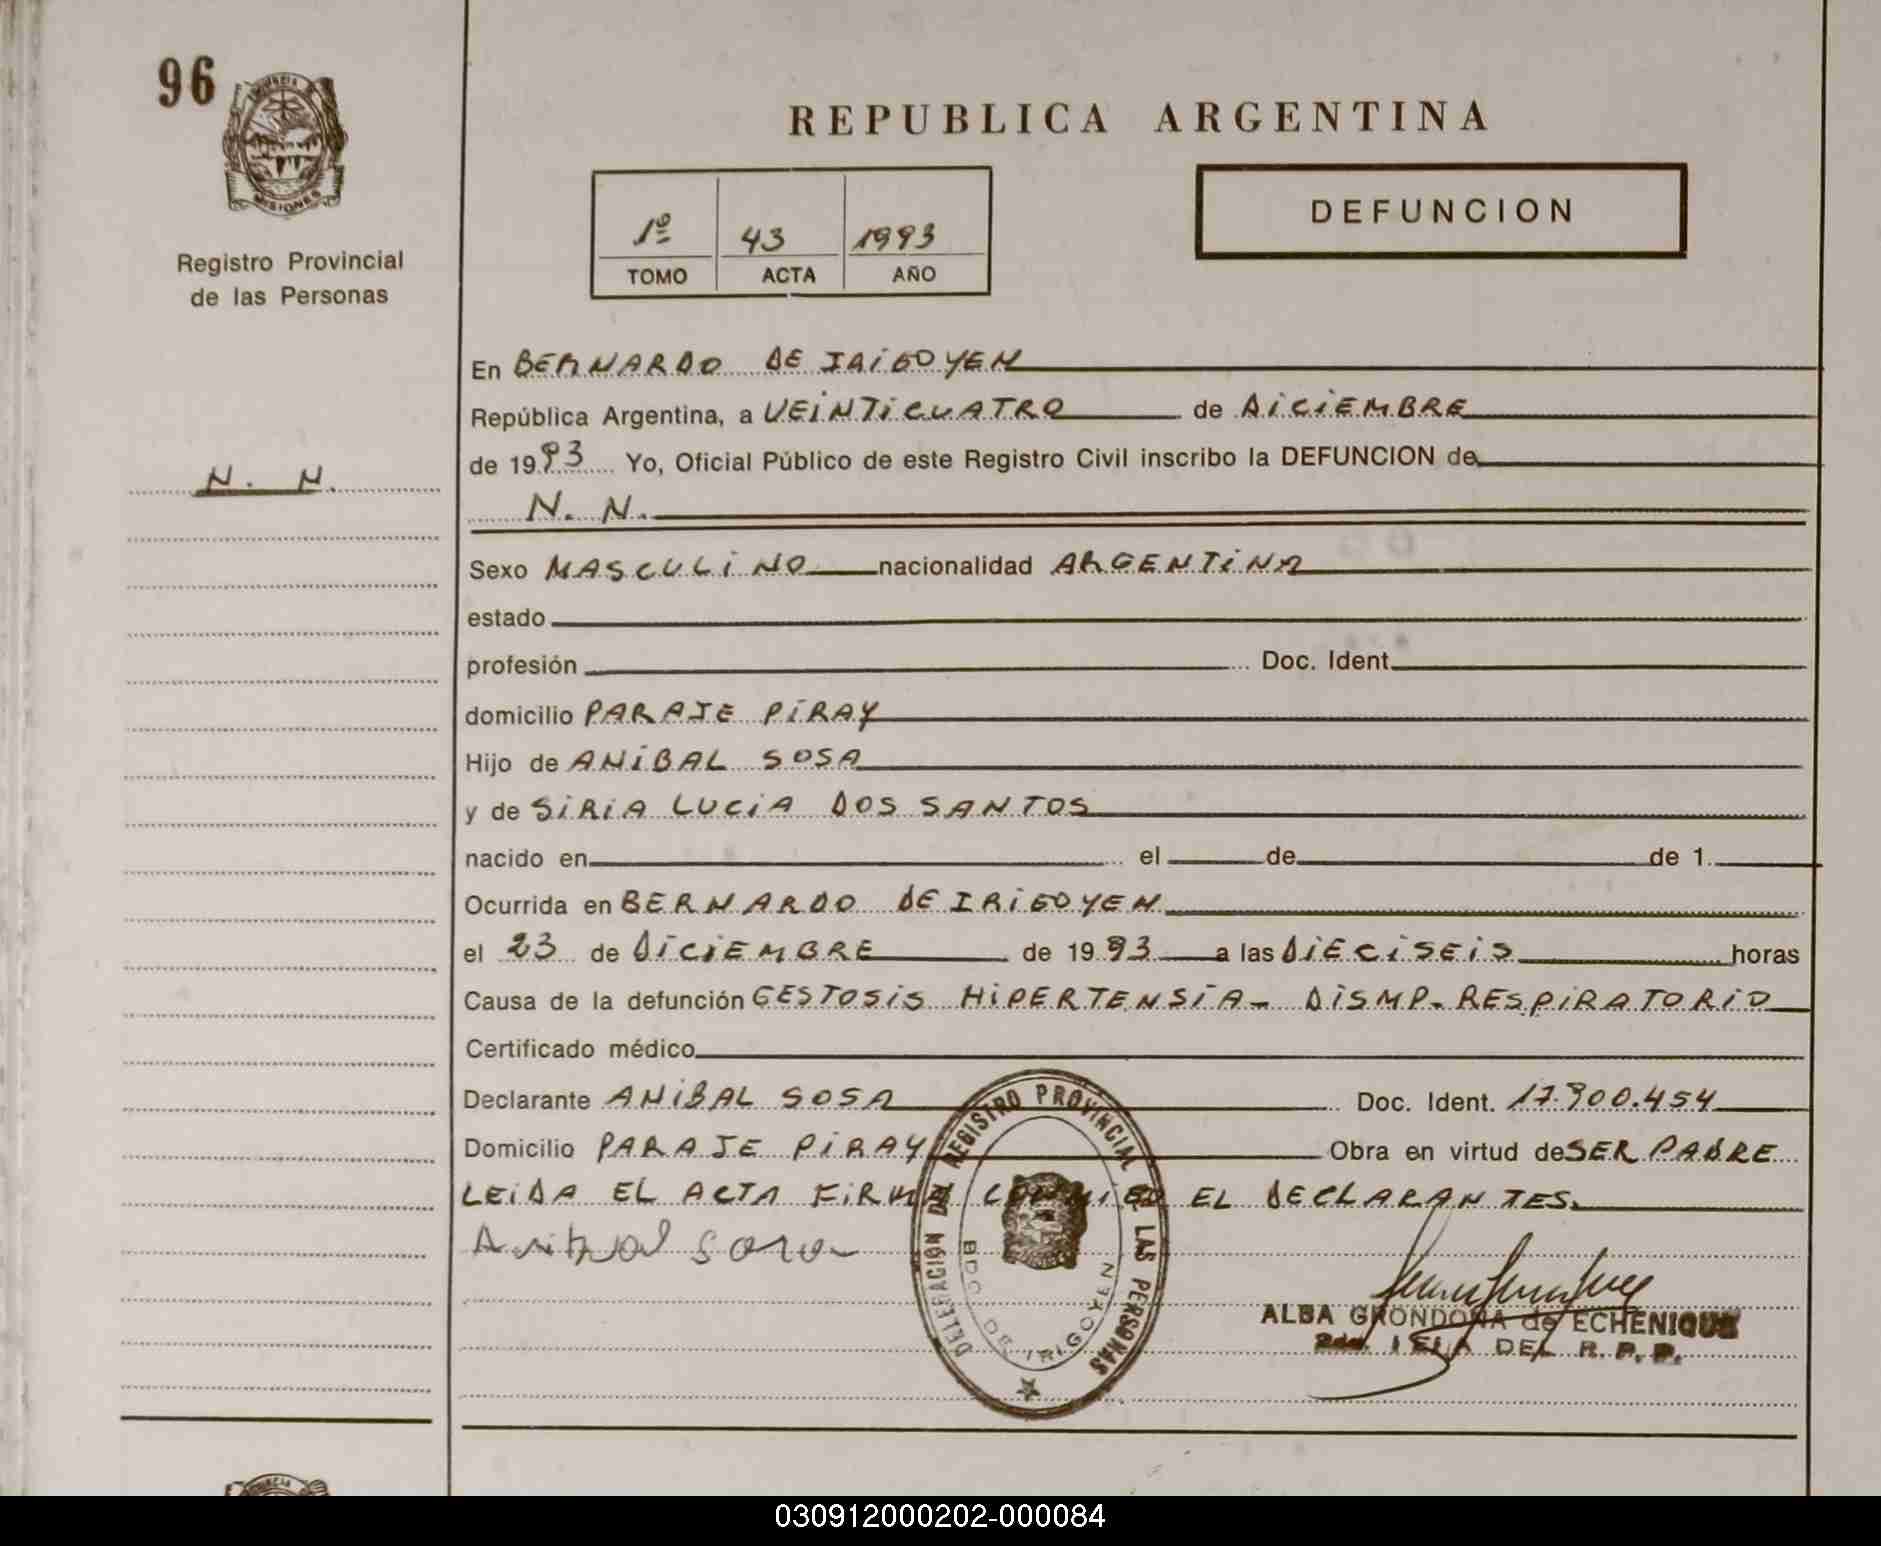 96
PROVINCIA DE
MISIONES
Registro Provincial
de las Personas
N. N.
REPUBLICA ARGENTINA
1º 43 1993
TOMO ACTA AÑO
DEFUNCION
En BERNARDO DE IRIGOYEN
República Argentina, a VEINTICUATRO de DICIEMBRE
de 1993 Yo, Oficial Público de este Registro Civil inscribo la DEFUNCION de
N. N.
Sexo MASCULINO nacionalidad ARGENTINA
estado
profesión Doc. Ident.
domicilio PARAJE PIRAY
Hijo de ANIBAL SOSA
y de SIRIA LUCIA DOS SANTOS
nacido en el de de 1
Ocurrida en BERNARDO DE IRIGOYEN
el 23 de DICIEMBRE de 1993 a las DIECISEIS horas
Causa de la defunción GESTOSIS HIPERTENSIA- DISMP-RESPIRATORIO
Certificado médico
Declarante ANIBAL SOSA Doc. Ident. 17.900.454
Domicilio PARAJE PIRAY Obra en virtud de SER PADRE
LEIDA EL ACTA FIRMA CONMIGO EL DECLARANTES.
Anibal Sosa
DELEGACION DEL REGISTRO PROVINCIAL DE LAS PERSONAS
BDO DE IRIGOYEN
ALBA GRONDONA de ECHENIQUE
DEL R. P. P.
030912000202-000084